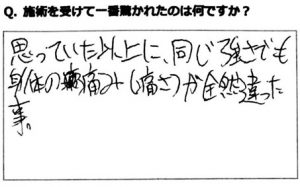 Q. 施術を受けて一番驚かれたのは何ですか？
思っていた以上に、同じ強さでも
身体の痛み(痛さ)が全然違った
事。